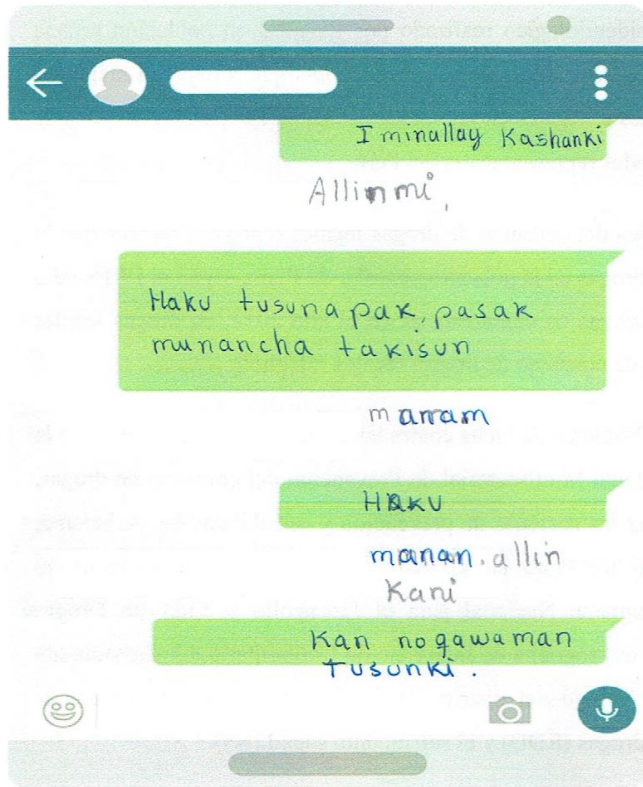 Iminallay Kashanki
Allinmi,
Haku tusunapak, pasak
munancha takisun
manam
HaKu
manan. allin
Kani
Kan nogawaman
tusunki.